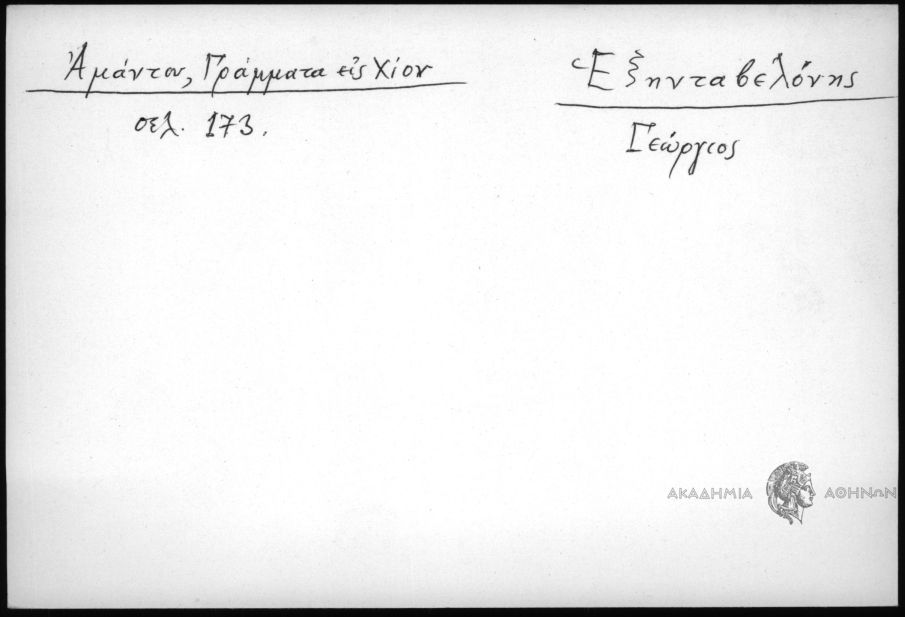 Ἀμάντου, Γράμματα εἰς Χίον
σελ. 173.
Ἑξηνταβελόνης
Γεώργιος
ΑΚΑΔΗΜΙΑ ΑΘΗΝΩΝ